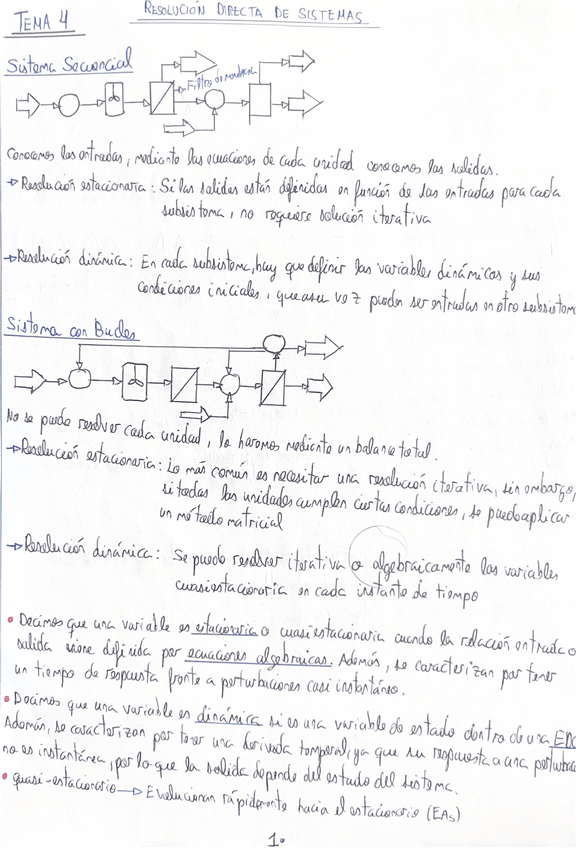 TEMA 4
RESOLUCIÓN DIRECTA DE SISTEMAS
Sistema Secuencial
Filtro de membrana
Conocemos las entradas, mediante las ecuaciones de cada unidad conocemos las salidas.
→ Resolución estacionaria: Si las salidas están definidas en función de las entradas para cada
subsistema, no requiere solución iterativa
→ Resolución dinámica: En cada subsistema, hay que definir las variables dinámicas y sus
condiciones iniciales, que a su vez pueden ser entradas en otro subsistema
Sistema con Bucles
No se puede resolver cada unidad, lo haremos mediante un balance total.
→ Resolución estacionaria: Lo más común es necesitar una resolución iterativa, sin embargo,
si todas las unidades cumplen ciertas condiciones, se puede aplicar
un método matricial
→ Resolución dinámica: Se puede resolver iterativa o algebraicamente las variables
cuasiestacionaria en cada instante de tiempo
• Decimos que una variable es estacionaria o cuasiestacionaria cuando la relación entrada o
salida viene definida por ecuaciones algebraicas. Además, se caracterizan por tener
un tiempo de respuesta frente a perturbaciones casi instantáneo.
• Decimos que una variable es dinámica si es una variable de estado dentro de una EDO
Además, se caracterizan por tener una derivada temporal, ya que su respuesta a una perturbac
no es instantánea, por lo que la salida depende del estado del sistema.
• quasi-estacionario → Evolucionan rápidamente hacia el estacionario (EAs)
1.